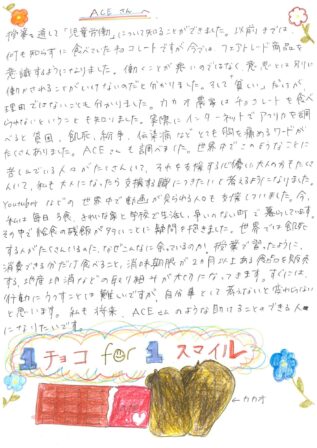 ACEさんへ
授業を通して「児童労働」について知ることができました。以前までは、
何も知らずに食べていたチョコレートですが今では、フェアトレード商品を
意識するようになりました。働くことが悪いのではなく意思とは別に
働かされることがいけないのだと分かりました。そして"貧しい"だけが
理由ではないことも分かりました。カカオ農家はチョコレートを食べ
られないということも知りました。実際にインターネットでアフリカを調
べると貧困、飢餓、紛争、伝染病などとても胸を痛めるワードが
たくさんありました。ACEさんも調べました。世界中でこのようなことに
苦しんでいる人々がたくさんいて、それを支援する心優しい大人の方もたくさ
んいて、私も大人になったら支援する職につきたいと考えるようになりました。
Youtubeなどの世界中で動画が見られる人も支援していました。今、
私は毎日3食、きれいな家と学校で生活し、争いのない町で暮らしています。
その中で給食の残飯が多いことに疑問を抱きました。世界では飢餓と
する人がたくさんいるのに、なぜこんなに余っているのか。授業で習ったように、
消費できる分だけ食べること、消味期限が2ヵ月以上ある食品を販売
する、地産地消などの取り組みが大切になってきます。すぐには、
行動にうつすことは難しいですが、自分事として考えないと変わらない
と思います。私も将来、ACEさんのような助けることのできる人
になりたいです。
1チョコ for 1スマイル
←カカオ